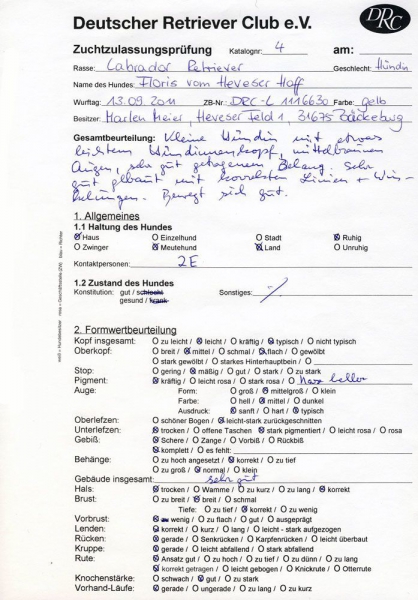 Deutscher Retriever Club e.V.
DRC
Zuchtzulassungsprüfung Katalognr: 4 am:
Rasse: Labrador Retriever Geschlecht: Hündin
Name des Hundes: Floris vom Heveser Hoff
Wurftag: 13.09.2011 ZB-Nr: DRC-L 1116630 Farbe: gelb
Besitzer: Marlen Meier, Heveser Feld 1, 31675 Bückeburg
Gesamtbeurteilung: Kleine Hündin mit etwas
leichtem Hündinnenkopf, mittelbraunen
Augen, sehr gut getragenem Behang. Sehr
gut gebaut mit korrekten Linien + Win-
kelungen. Bewegt sich gut.
1. Allgemeines
1.1 Haltung des Hundes
Haus Einzelhund Stadt Ruhig
Zwinger Meutehund Land Unruhig
Kontaktpersonen: 2E
1.2 Zustand des Hundes
Konstitution: gut/schlecht Sonstiges:
gesund / krank
2. Formwertbeurteilung
Kopf insgesamt: zu leicht / leicht / kräftig / typisch / nicht typisch
Oberkopf: breit / mittel / schmal / flach / gewölbt
stark gewölbt / starkes Hinterhauptbein /
Stop: gering / mäßig / gut / stark / zu stark
Pigment: kräftig / leicht rosa / stark rosa / Nase heller
Auge: Form: groß / mittelgroß / klein
Farbe: hell / mittel / dunkel
Ausdruck: sanft / hart / typisch
Oberlefzen: schöner Bogen / leicht-stark zurückgeschnitten
Unterlefzen: trocken / offene Taschen stark pigmentiert / leicht rosa / rosa
Gebiß: Schere / Zange / Vorbiß / Rückbiß
komplett / es fehlt:
Behänge: zu hoch angesetzt / korrekt / zu tief
zu groß / normal / klein
Gebäude insgesamt: sehr gut
Hals: trocken / Wamme / zu kurz / zu lang / korrekt
Brust: zu breit / breit / schmal
Tiefe: zu tief / korrekt / zu wenig
Vorbrust: zu wenig / zu flach / gut / ausgeprägt
Lenden: korrekt / kurz / lang / leicht - stark aufgezogen
Rücken: gerade / Senkrücken / Karpfenrücken / leicht überbaut
Kruppe: gerade / leicht abfallend / stark abfallend
Rute: Ansatz gut / zu hoch / zu tief / zu dünn / zu lang
korrekt getragen / leicht gebogen / Knickrute / Otterrute
Knochenstärke: schwach / gut / zu stark
Vorhand-Läufe: gerade / ungerade / zu lang / zu kurz